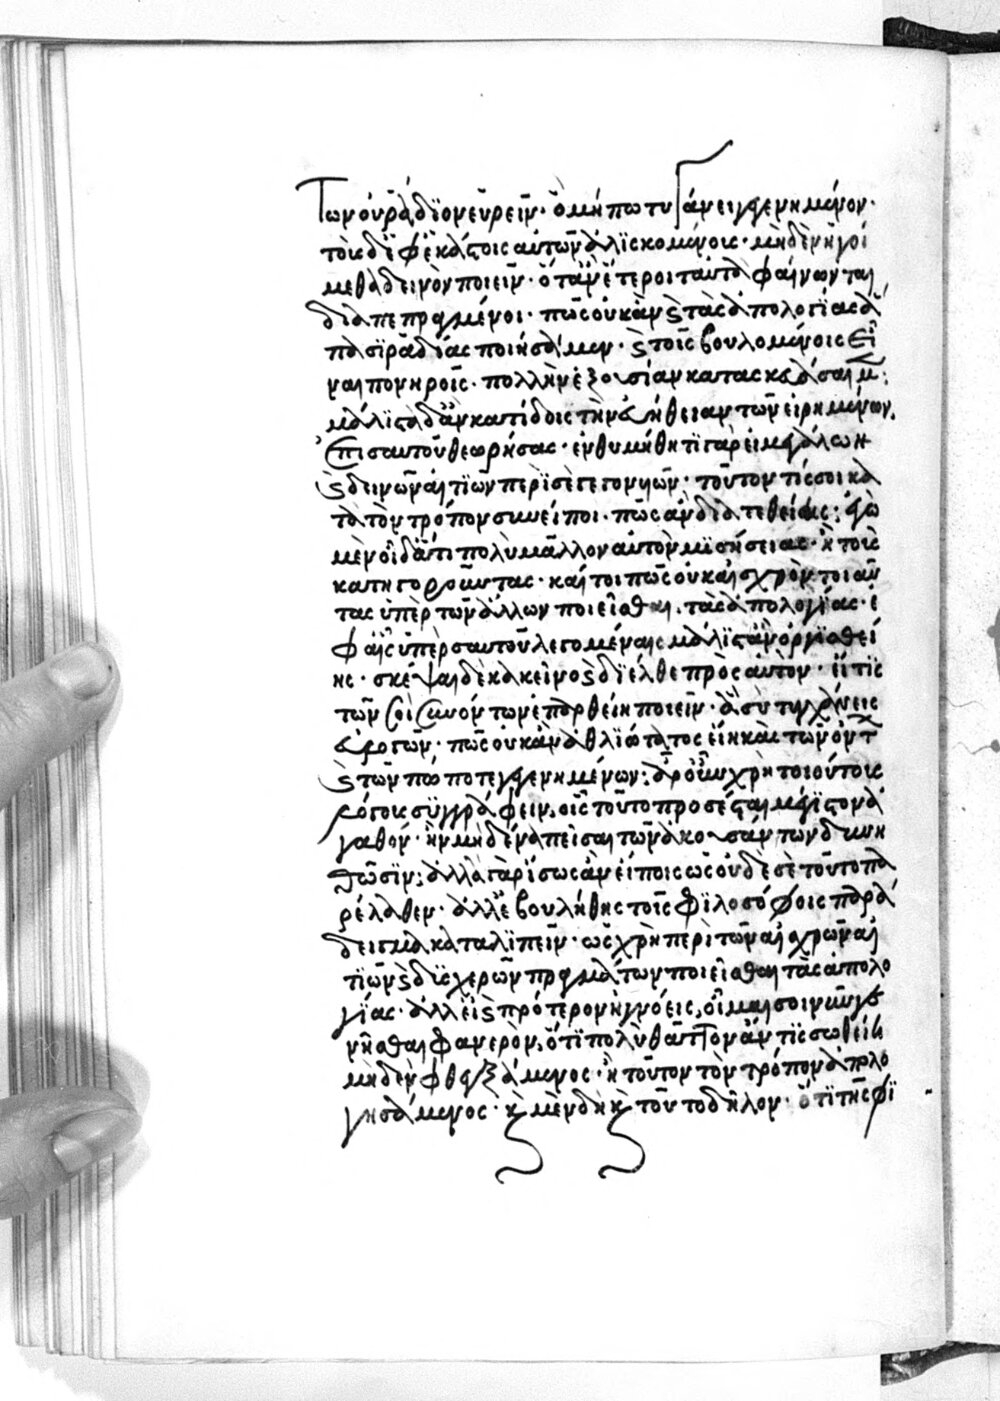 των οὐ ῥάδϊον εὑρεῖν· ὃ μήπω τυγχάνει γεγενημένον·
τοῖς δὲ ἐφ' ἑκάστοις αὐτῶν ἁλϊσκομένοις· μηδὲν ἡγοί
μεθα δεινὸν ποιεῖν· ὅταν ἕτεροι ταὐτὰ φαίνωνται
διαπεπραγμένοι· πῶς οὐκ ἂν καὶ τὰς ἀπολογΐας ἅ
πασϊ ῥαδίας ποιήσαιμεν· καὶ τοῖς βουλομένοις εἶ
ναι πονηροῖς· πολλὴν ἐξουσίαν κατασκευάσαιμεν;
μάλϊστα δ' ἂν κατίδοις τὴν ἀλήθειαν τῶν εἰρημένων,
ἐπὶ σαυτοῦ θεωρήσας· ἐνθυμήθητι γὰρ εἰ μεγάλων
καὶ δεινῶν αἰτϊῶν περὶ σὲ γεγονυιῶν· τοῦτον τίς σοι κα
τὰ τὸν τρόπον συνείποι· πῶς ἂν διατεθείης; ἐγὼ
μὲν οἶδ' ὅτι πολὺ μᾶλλον αὐτὸν μϊσήσειας· ἢ τοὺς
κατηγοροῦντας· καί τοι πῶς οὐκ αἰσχρὸν τοιαύ
τας ὑπὲρ τῶν ἄλλων ποιεῖσθαι τὰς ἀπολογΐας· ἐ
φ' αἷς ὑπὲρ σαυτοῦ λεγομέναις μάλϊστ' ἂν ὀργϊσθεί
ης· σκέψαι δὲ κἀκεῖνο καὶ δίελθε πρὸς αὐτὸν· εἴ τϊς
τῶν σοὶ συνόντων ἐπαρθείη ποιεῖν· ἃ σὺ τυγχάνεις
εὐλογῶν· πῶς οὐκ ἂν ἀθλϊώτατος εἴη καὶ τῶν ὄντων
καὶ τῶν πώποτε γεγενημένων; ἆρ' οὖν χρὴ τοιούτους
λόγους συγγράφειν, οἷς τοῦτο προσέσται μέγϊστον ἀ
γαθόν· ἢν μηδένα πεῖσαι τῶν ἀκουσάντων δυνη
θῶσϊν; ἀλλὰ γὰρ ἴσως ἂν εἴποις ὡς οὐδὲ σὲ τοῦτο πα
ρέλαθεν· ἀλλ' ἐβουλήθης τοῖς φϊλοσόφοις παρά
δειγμα καταλϊπεῖν· ὡς χρὴ περὶ τῶν αἰσχρῶν αἰ
τϊῶν καὶ δϋσχερῶν πραγμάτων ποιεῖσθαι τὰς ἀπολο
γίας· ἀλλ' εἰ καὶ πρότερον ἠγνόεις, οἶμαι σοι νῦν γεγε
νῆσθαι φανερὸν, ὅτϊ πολὺ θᾶττον ἄν τϊς σωθείη
μηδὲν φθεγξάμενος· ἢ τοῦτον τὸν τρόπον ἀπολο
γησάμενος· καὶ μὲν δὴ καὶ τοῦτο δῆλον· ὅτϊ τῆς φϊ